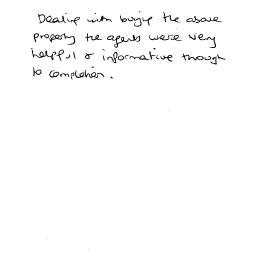 Dealing with buying the above
property the agents were very
helpful & informative through
to completion.